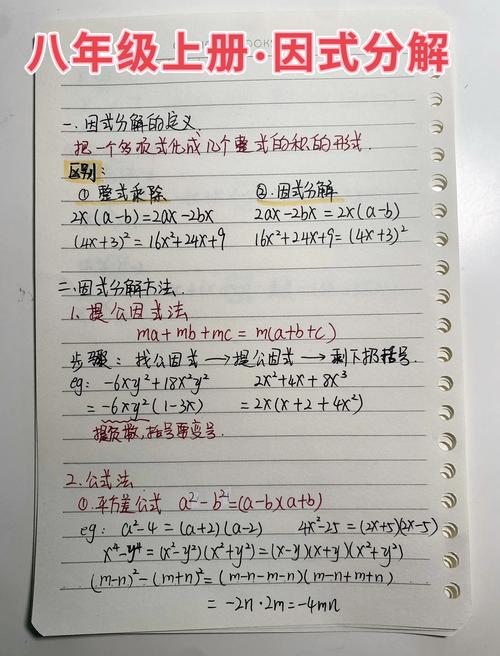 八年级上册·因式分解
一、因式分解的定义
把一个多项式化成几个整式的积的形式.
区别:
① 整式乘除 ②.因式分解
2x(a-b)=2ax-2bx 2ax-2bx=2x(a-b)
(4x+3)²=16x²+24x+9 16x²+24x+9=(4x+3)²
二、因式分解方法.
1、提公因式法
ma+mb+mc=m(a+b+c)
步骤:找公因式→提公因式→剩下扔括号.
eg: -6xy²+18x²y² 2x²+4x+8x³
=-6xy²(1-3x) =2x(x+2+4x²)
提负数,括号要变号.
2.公式法
①.平方差公式 a²-b²=(a-b)(a+b)
eg: a²-4=(a+2)(a-2) 4x²-25=(2x+5)(2x-5)
x⁴-y⁴=(x²-y²)(x²+y²)=(x-y)(x+y)(x²+y²)
(m-n)²-(m+n)²=(m-n-m-n)(m-n+m+n)
=-2n·2m=-4mn